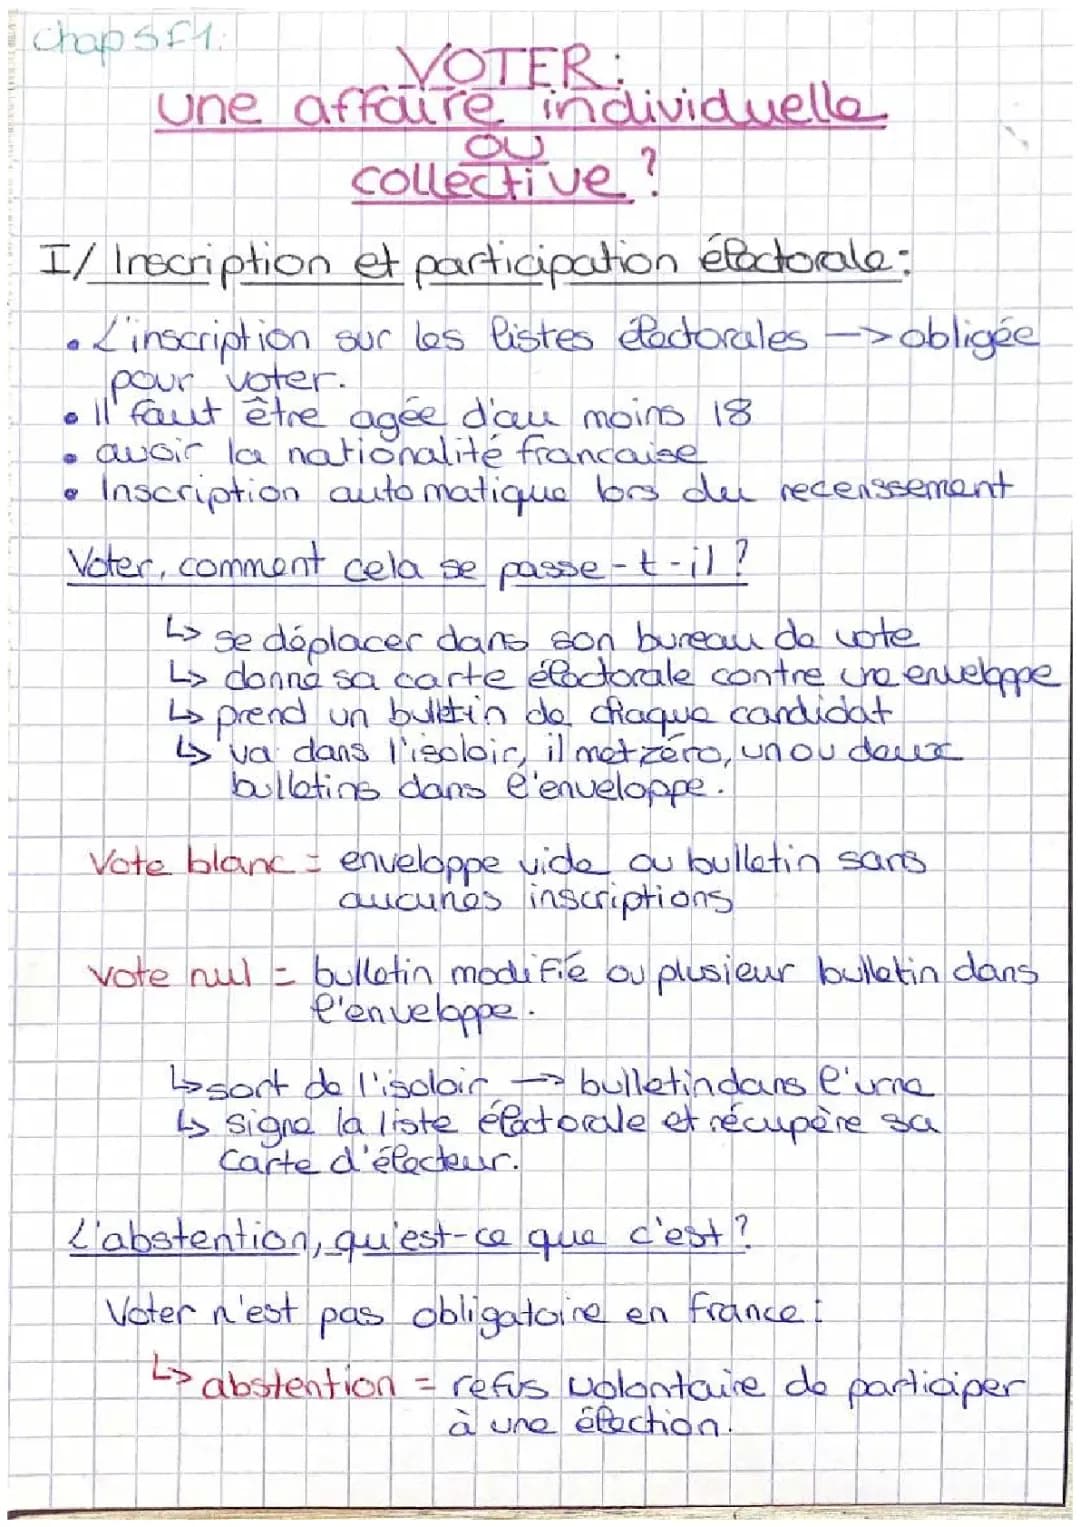 chap 5 f1:
VOTER:
une affaire individuelle
ou
collective ?
I/ Inscription et participation électorale:
• L'inscription sur les listes électorales -> obligée
pour voter.
• Il faut être agée d'au moins 18
• avoir la nationalité francaise
• Inscription automatique lors du recenssement
Voter, comment cela se passe-t-il ?
↳ se déplacer dans son bureau de vote
↳ donne sa carte électorale contre une enveloppe
↳ prend un bulletin de chaque candidat
↳ va dans l'isoloir, il met zéro, un ou deux
bulletins dans l'enveloppe.
Vote blanc = enveloppe vide ou bulletin sans
aucunes inscriptions
vote nul = bulletin modifié ou plusieur bulletin dans
l'enveloppe.
↳ sort de l'isoloir -> bulletin dans l'urne
↳ signe la liste électorale et récupère sa
carte d'électeur.
L'abstention, qu'est-ce que c'est ?
Voter n'est pas obligatoire en france :
↳ abstention = refus volontaire de participer
à une élection.